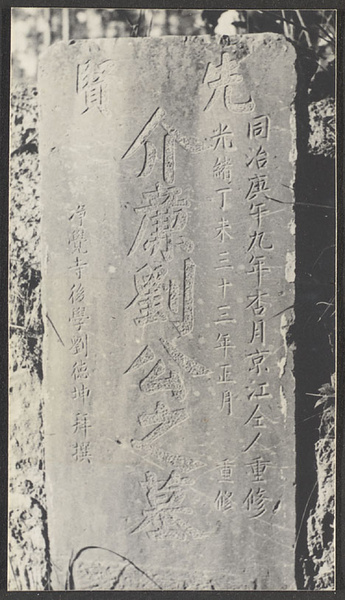 先賢
同治庚午九年杏月京江仝人重修
光緒丁未三十三年正月 重修
介廉劉公之墓
淨覺寺後學劉德坤拜撰